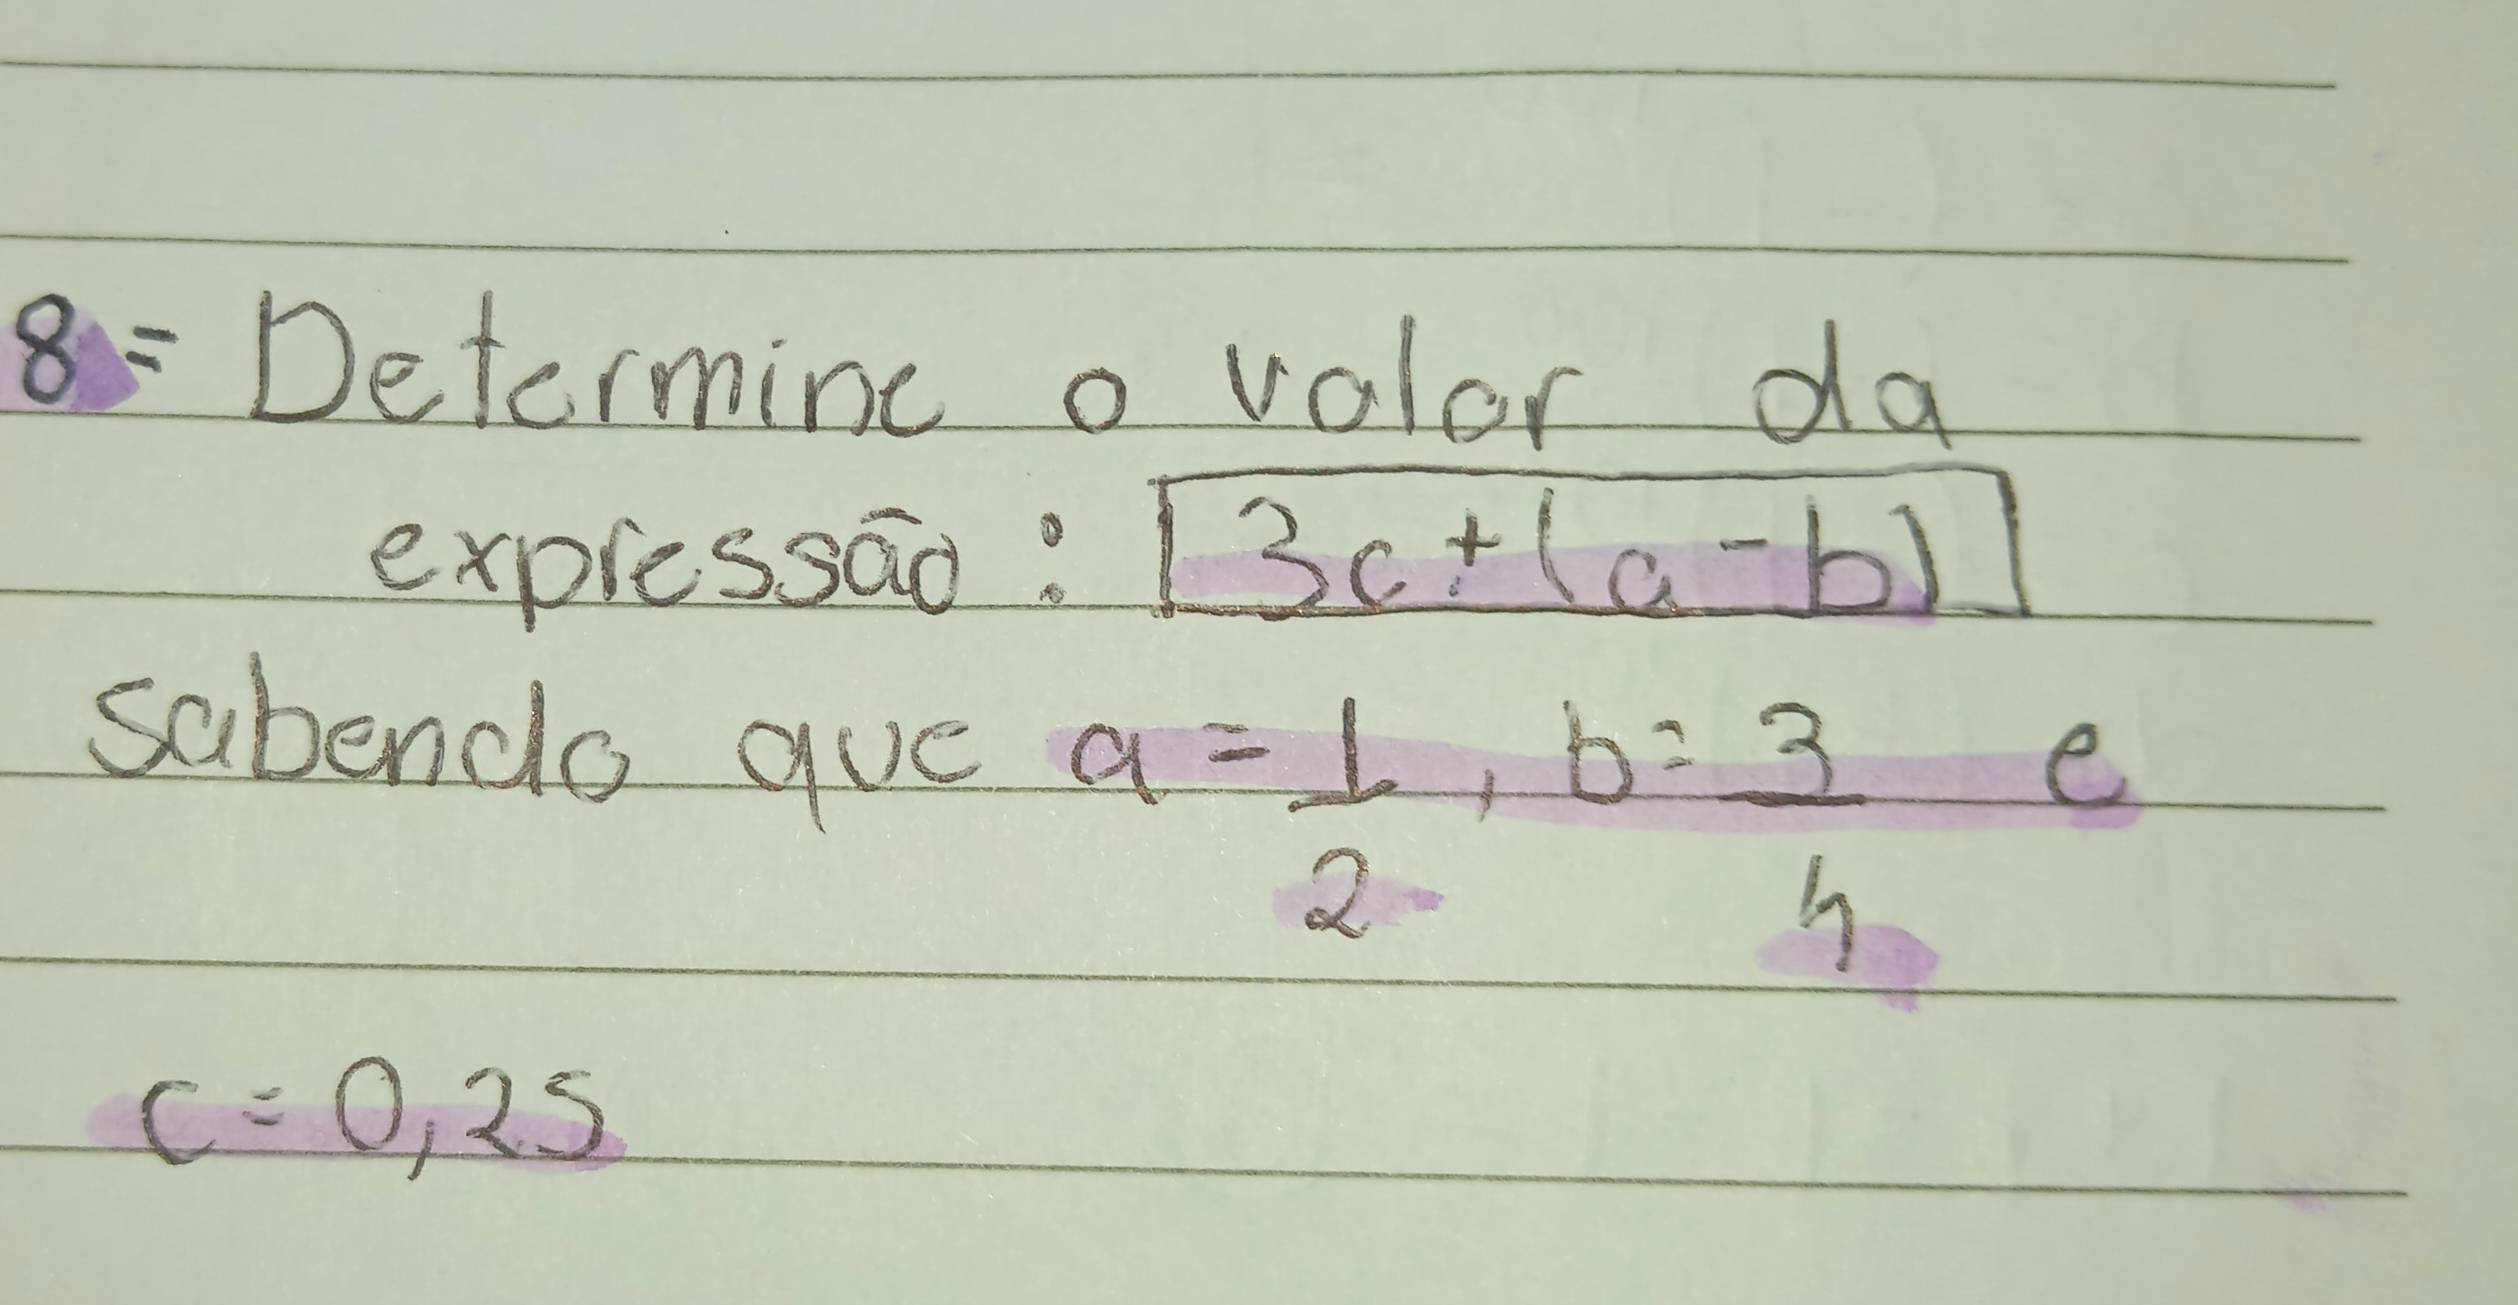 8= Determine o valor da
expressão: 3c+(a-b)
sabendo que a = 1, b = 3 e
2 4
c = 0,25